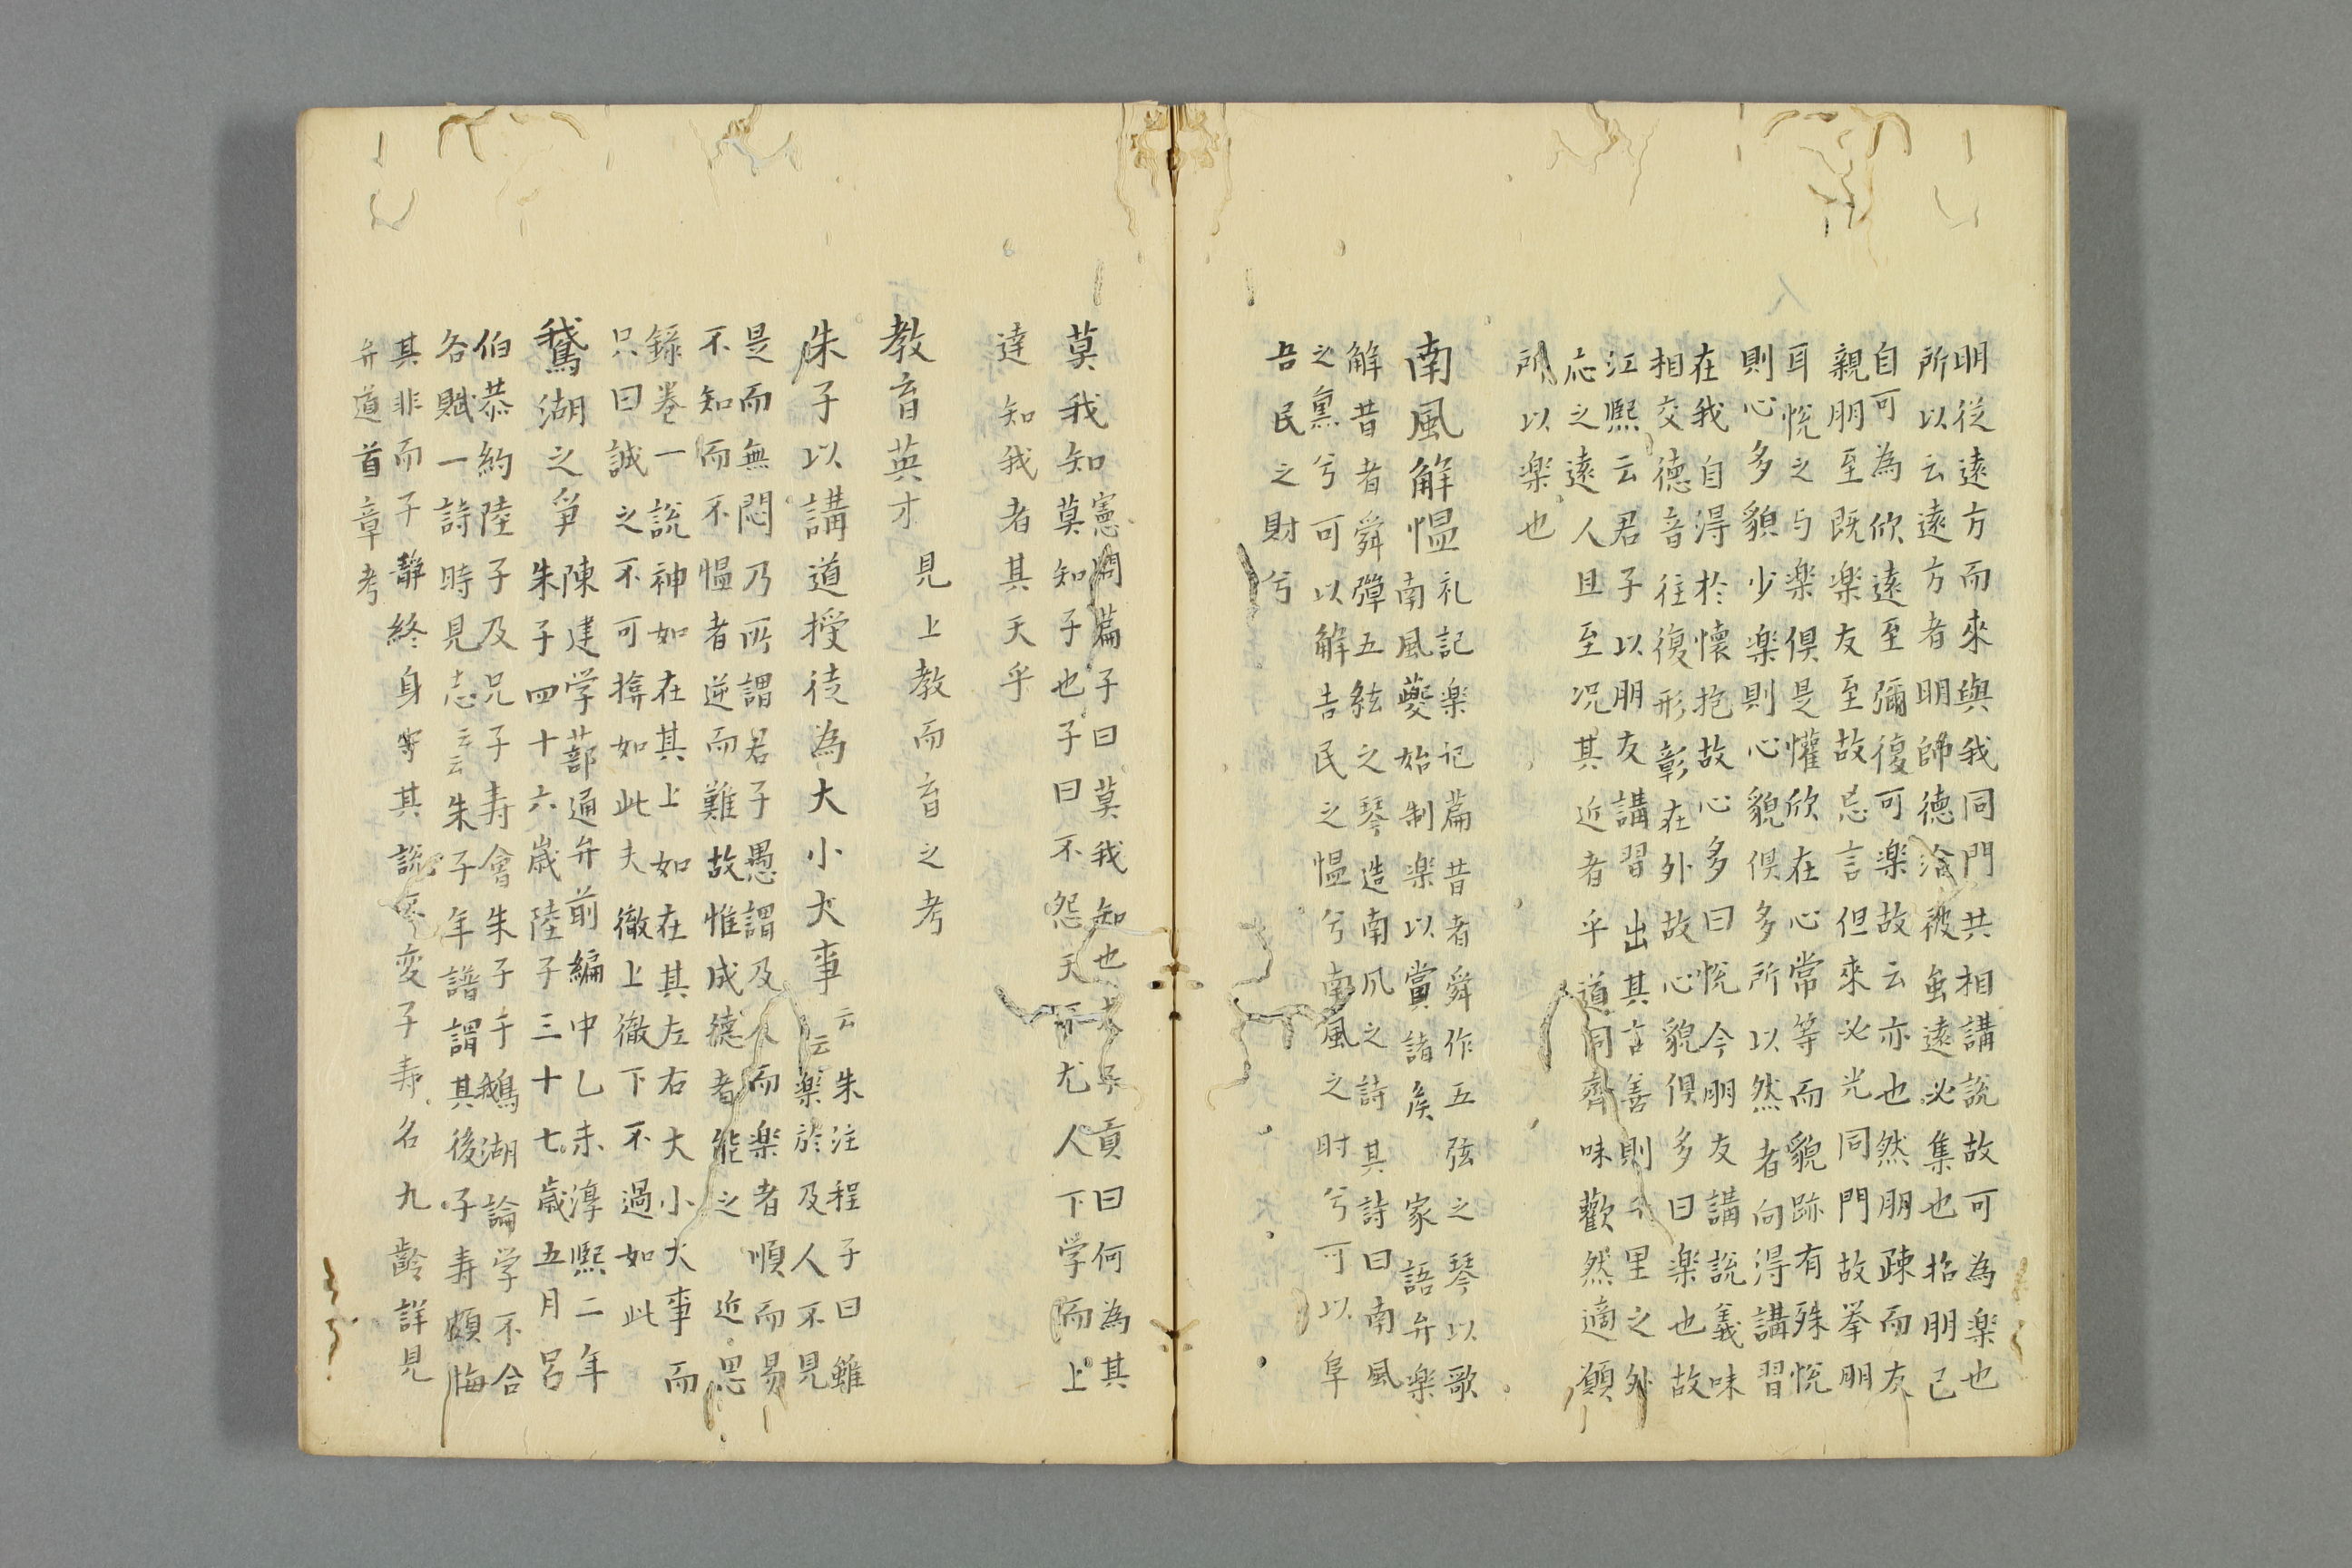 明從遠方而來與我同門共相講説故可為楽也
所以云遠方者明師德洽被虽遠必集也招朋已
自可為欣遠至彌復可楽故云亦也然朋疎而友
親朋至既楽友至故忘言但來必先同門故挙朋
耳悦之与楽俱是懽欣在心常等而貌跡有殊悦
則心多貌少楽則心貌俱多所以然者向得講習
在我自淂於懷抱故心多曰悦今朋友講説義味
相交德音往復形彰在外故心貌俱多曰楽也故
江熙云君子以朋友講習出其言善則千里之外
応之遠人且至况其近者乎道同齊味歡然適願
所以楽也
南風解慍
礼記楽记篇昔者舜作五弦之琴以歌
南風夔始制楽以賞諸矦 家語弁楽
解昔者舜彈五絃之琴造南凨之詩其詩曰南風
之熏兮可以解吾民之慍兮南風之时兮可以阜
吾民之財兮
莫我知
憲問篇子曰莫我知也夫子貢曰何為其
莫知子也子曰不怨天不尤人下学而上
達知我者其天乎
教育英才 見上教而育之考
朱子以講道授徒為大小大事云云
朱注程子曰雖
楽於及人不見
是而無悶乃所謂君子愚謂及人而楽者順而易
不知而不慍者逆而難故惟成德者能之 近思
録卷一説神如在其上如在其左右大小大事而
只曰誠之不可揜如此夫徹上徹下不過如此
鵞湖之爭
陳建学蔀通弁前編中乙未淳熙二年
朱子四十六歳陸子三十七歳五月呂
伯恭約陸子及兄子寿會朱子于鵝湖論学不合
各賦一詩時見志云云朱子年譜謂其後子寿頗悔
其非而子静終身守其説不変子寿名九齢詳見
弁道首章考